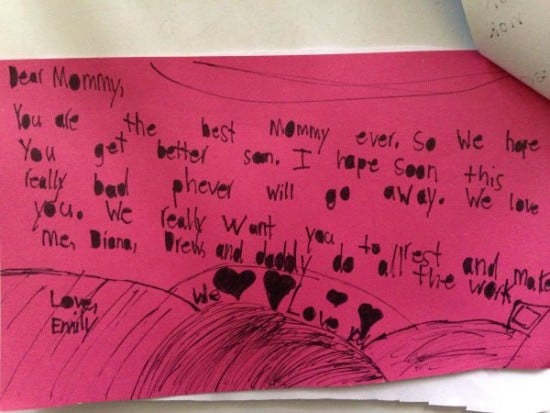 Dear Mommy,
You are the best Mommy ever. So we hope
You get better son. I hope soon this
really bad phever will go away. We love
you. We really want you to rest and make
me, Diana, Drew, and daddy do all the work
Love,
Emily
We
Love